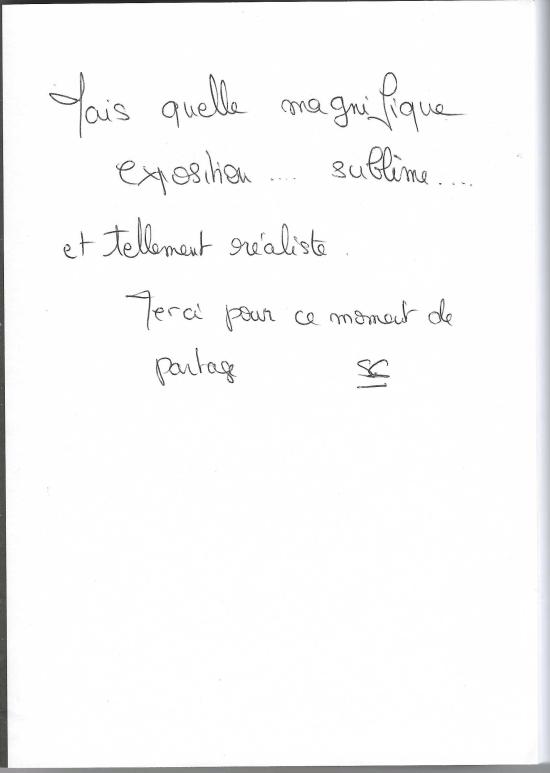 Mais quelle magnifique
exposition .... sublime....
et tellement réaliste.
Merci pour ce moment de
partage SC